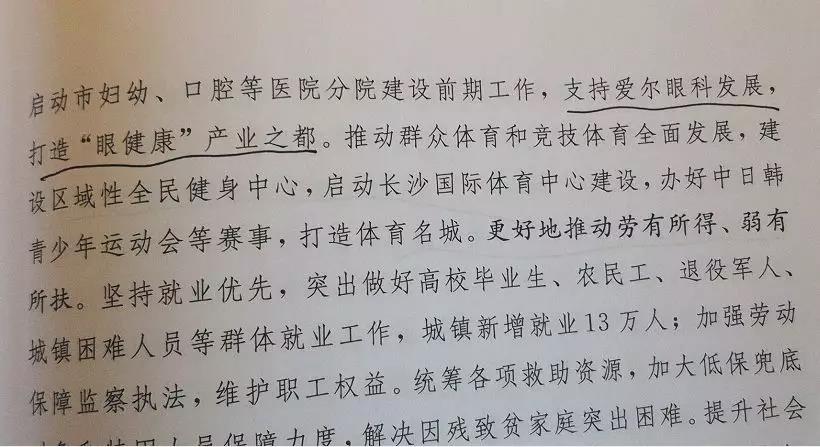 启动市妇幼、口腔等医院分院建设前期工作，支持爱尔眼科发展，
打造“眼健康”产业之都。推动群众体育和竞技体育全面发展，建
设区域性全民健身中心，启动长沙国际体育中心建设，办好中日韩
青少年运动会等赛事，打造体育名城。更好地推动劳有所得、弱有
所扶。坚持就业优先，突出做好高校毕业生、农民工、退役军人、
城镇困难人员等群体就业工作，城镇新增就业13万人；加强劳动
保障监察执法，维护职工权益。统筹各项救助资源，加大低保兜底
人员保障力度，解决因残致贫家庭突出困难。提升社会